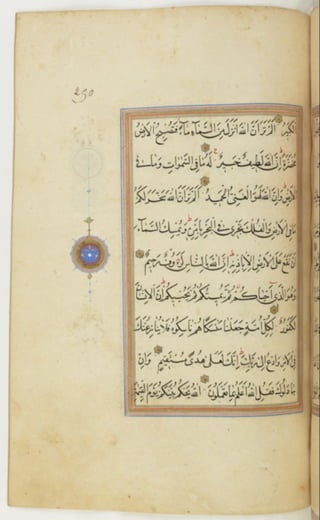 الكبير الم تر ان الله انزل من السماء ماء فتصبح الارض
مخضرة ان الله لطيف خبير له ما في السموات وما في
الارض وان الله لهو الغني الحميد الم تر ان الله سخر لكم
ما في الارض والفلك تجري في البحر بامره ويمسك السماء
ان تقع على الارض الا باذنه ان الله بالناس لرؤف رحيم
وهو الذي احياكم ثم يميتكم ثم يحييكم ان الانسان
لكفور لكل امة جعلنا منسكا هم ناسكوه فلا ينازعنك
في الامر وادع الى ربك انك لعلى هدى مستقيم وان
جادلوك فقل الله اعلم بما تعملون الله يحكم بينكم يوم القيمة